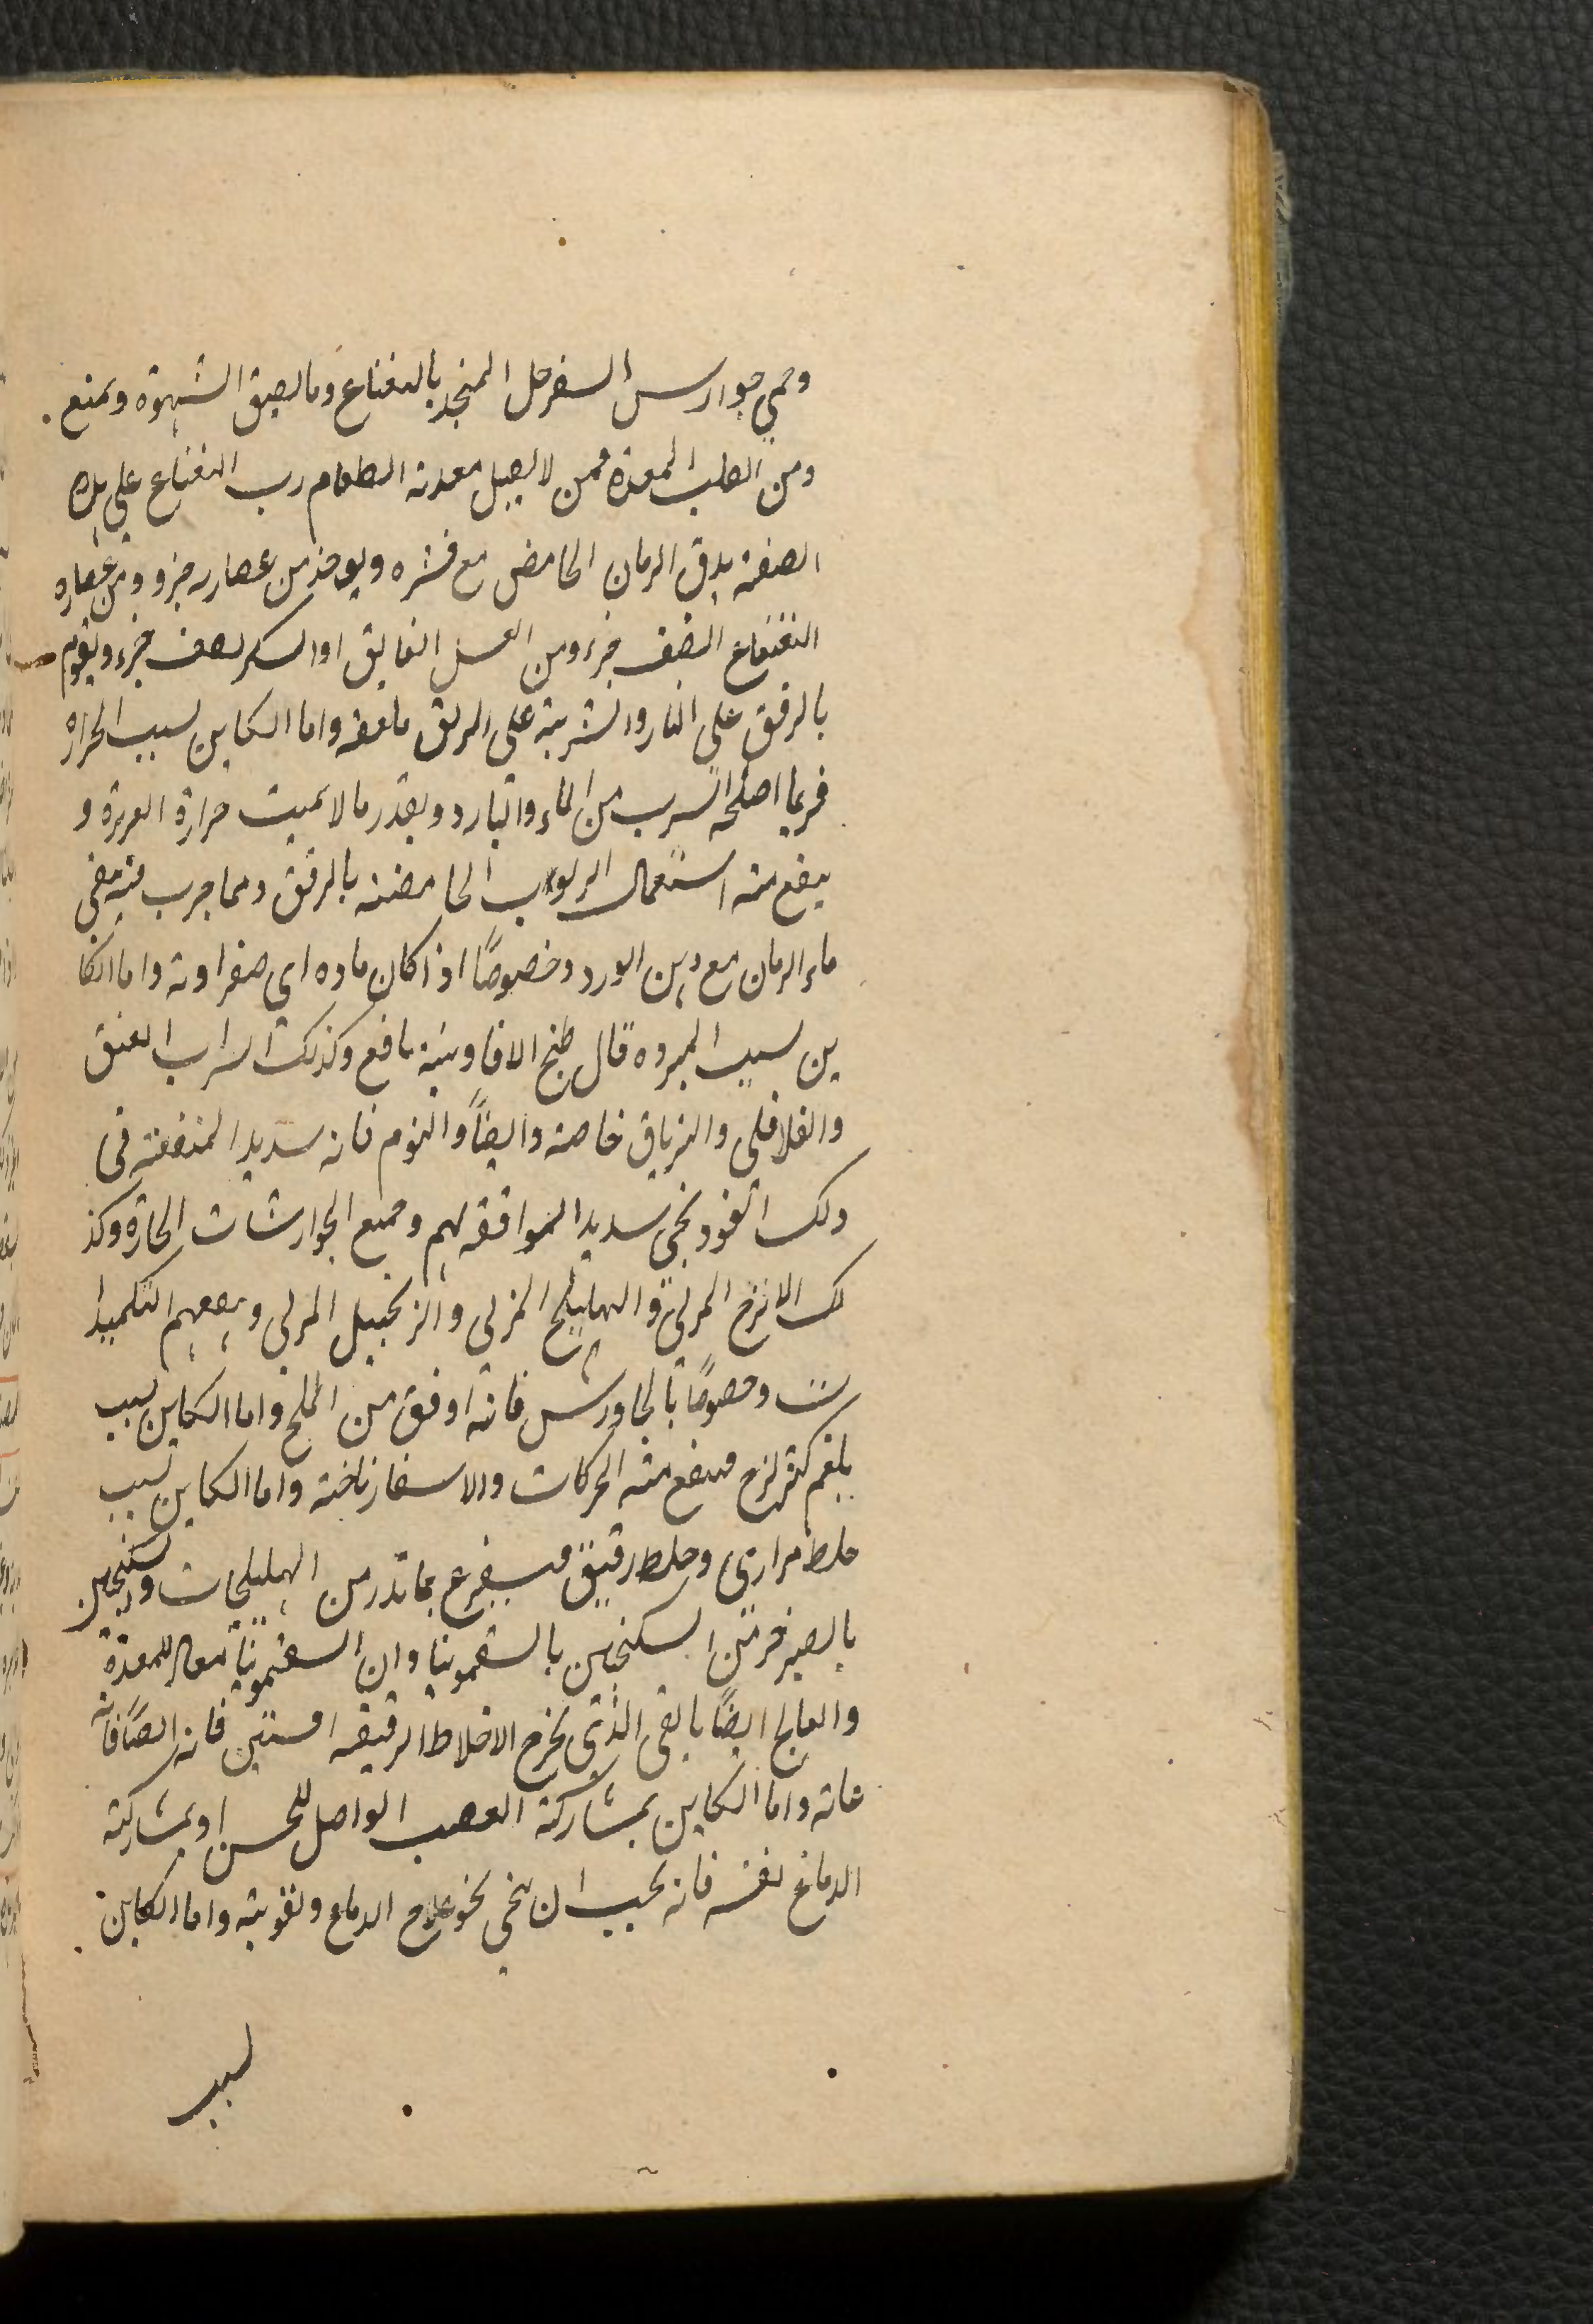 وهي جوارس السفرجل المتخذ بالنعناع وما يصق الشهوة ويمنع
ومن الطلب المعدة فمن لا يصل معدته الطعام رب النعناع على هذه
الصفة يدق الرمان الحامض مع قشره ويوخذ من عصاره جزو ومن عصاره
النعناع النصف جزء ومن العسل الفايق او السكر نصف جزء ويقوم
بالرفق على النار والشربة على الريق ملعقه واما الكاين لسبب الحراره
فربما اصلحه السرب من الماء والبارد وبقدر ما لا يميت حرارة العزيزة و
ينفع منه استعمال الربوب الحامضة بالرفق ومما جرب فيه سقى
ماء الرمان مع دهن الورد وخصوصًا اذا كان ماده اى صفراوية واما الكا
ين لسبب البروده قال طبخ الافاوية نافع وكذلك الشراب العتق
والفلافلى والترياق خاصة وايضًا والثوم فانه سديد المنفعة فى
ذلك الفودنجى سديد الموافقه لهم وجميع الجوارشات الحاره وكذ
لك الاترج المربى والهليلج المربى والزنجبيل المربى وينفعهم التكميدا
ت وخصوصًا بالجاورس فانه اوفق من الملح واما الكاين لسبب
بلغم كثير لزج فينفع منه الحركات والاسفار ناخته واما الكاين لسبب
خلط مرارى وخلط رقيق فيستفرغ بما تدر من الهليلجات وسكنجبين
بالصبر خير من السكنجبين بالسقمونيا وان السقمونيا تعاد للمعدة
والعالج ايضًا بالقى الذى يخرج الاخلاط الرقيقه افسنتين فانه ايضًا فانه
غاية واما الكاين بمشاركة العصب الواصل للحس او بمشاركة
الدماغ نفسه فانه يجب ان ينحى نحو علاج الدماغ وتقويته واما الكاين
لسبب